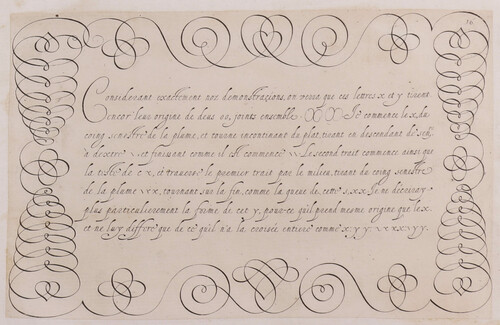 36
Considerant exactement noz demonstrations, on verra que ces lettres x et y tirent
encor leur origine de deus oo, joints ensemble. Je commence le x, du
coing senestre de la plume, et tourne incontinant du plat tirant en descendant de sen.
a dextre et finissant comme il est commence Le second trait commence ainsi que
la teste de c x, et traverse le premier trait par le milieu, tirant du coing senestre
de la plume x x, tournant sur la fin, comme la queue de cette s, x x Je ne diviseray
plus particulierement la forme de cet y, pour-ce qu'il prend mesme origine que le x
et ne luy differe que de ce qu'il n'a la croisée entiere comme x: y y: x x x y y y.